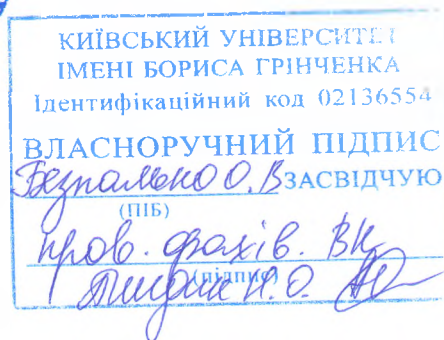 КИЇВСЬКИЙ УНІВЕРСИТЕТ
ІМЕНІ БОРИСА ГРІНЧЕНКА
Ідентифікаційний код 02136554
ВЛАСНОРУЧНИЙ ПІДПИС
Безпалько О.В ЗАСВІДЧУЮ
(ПІБ)
пров. фахів. ВК
(підпис)
Н.О.